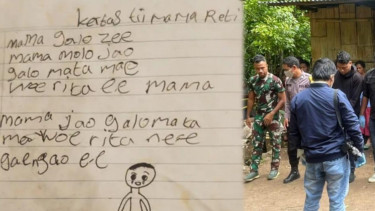 kertas tii mama Reti
mama galo zee
mama molo jao
galo mata mae
woe rita ee mama
mama jao galo mata
mae woe rita ne'e
gae ngao ee